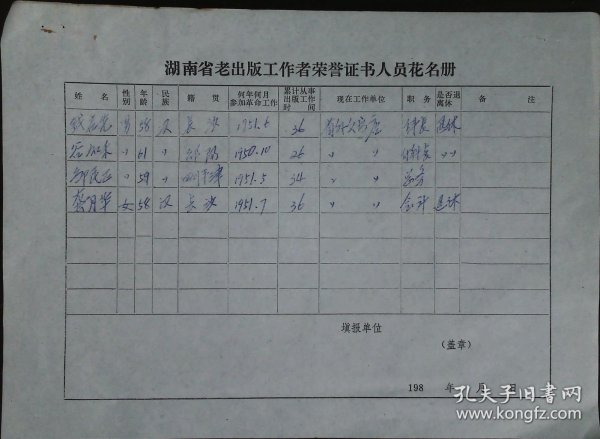 湖南省老出版工作者荣誉证书人员花名册
姓 名 性别 年龄 民族 籍 贯 何年何月参加革命工作 累计从事出版工作时间 现在工作单位 职 务 是否退离休 备 注
男 58 汉 长沙 1951.6 36 科长 退休
〃 61 〃 邵阳 1950.10 26 〃 〃 〃〃
〃 59 〃 1951.5 34 〃 〃
蔡月华 女 58 汉 长沙 1951.7 36 〃 〃 会计 退休
填报单位
(盖章)
198 年 月 日
孔夫子旧书网
www.kongfz.com